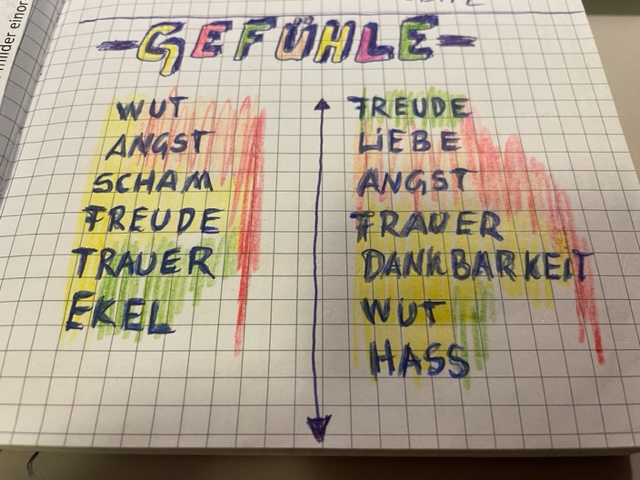 -GEFÜHLE-
WUT
ANGST
SCHAM
FREUDE
TRAUER
EKEL
FREUDE
LIEBE
ANGST
TRAUER
DANKBARKEIT
WUT
HASS